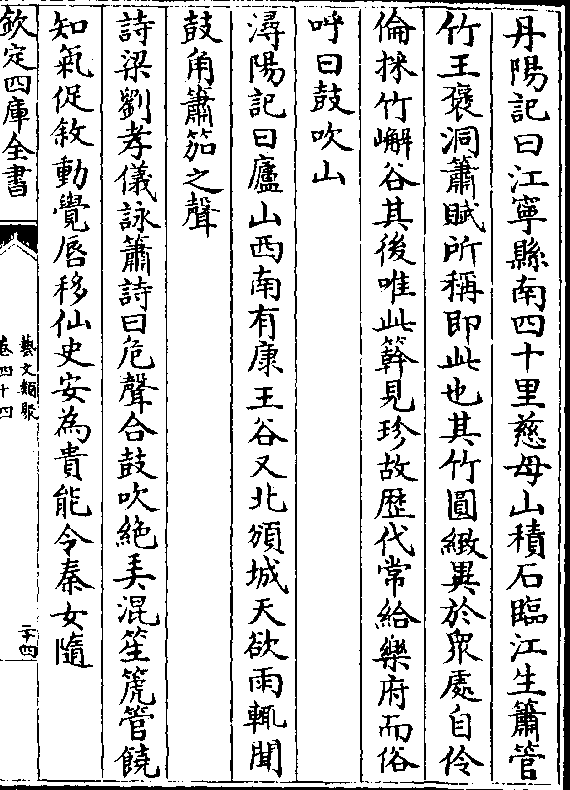 丹陽記曰江寧縣南四十里慈母山積石臨江生簫管
竹王褒洞簫賦所稱即此也其竹圓緻異於眾處自伶
倫採竹嶰谷其後唯此簳見珍故歷代常給樂府而俗
呼曰鼓吹山
潯陽記曰廬山西南有康王谷又北頒城天欲雨輒聞
鼓角簫笳之聲
詩梁劉孝儀詠簫詩曰危聲合鼓吹絕弄混笙篪管饒
知氣促敘動覺唇移仙史安為貴能令秦女隨
欽定四庫全書
藝文類聚
卷四十四
二十四